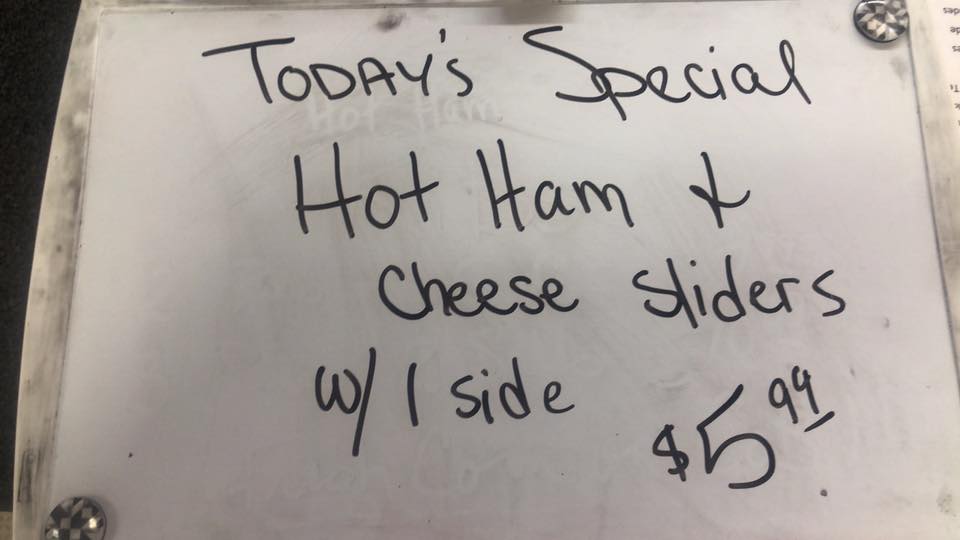 TODAY'S Special
Hot Ham &
Cheese Sliders
w/ 1 side $5.99